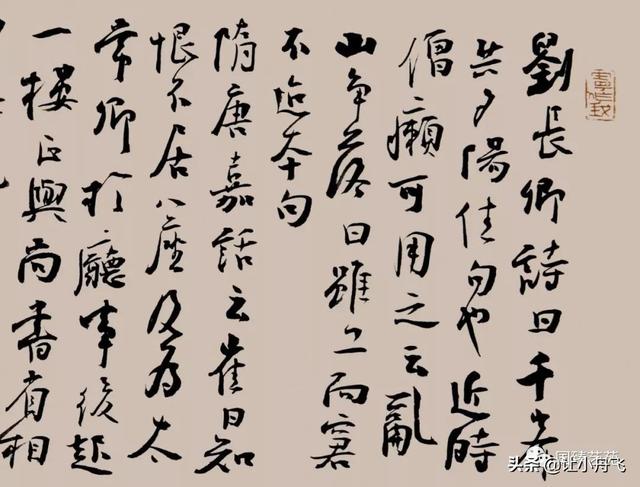 劉長卿詩曰千峯
共夕陽佳句也近時
僧癩可用之云亂
山争落日雖工而窘
不迨本句
隋唐嘉話云崔日知
恨不居八座及为太
常卿於廳事後起
一樓正與尚書省相
头条@让小丹飞